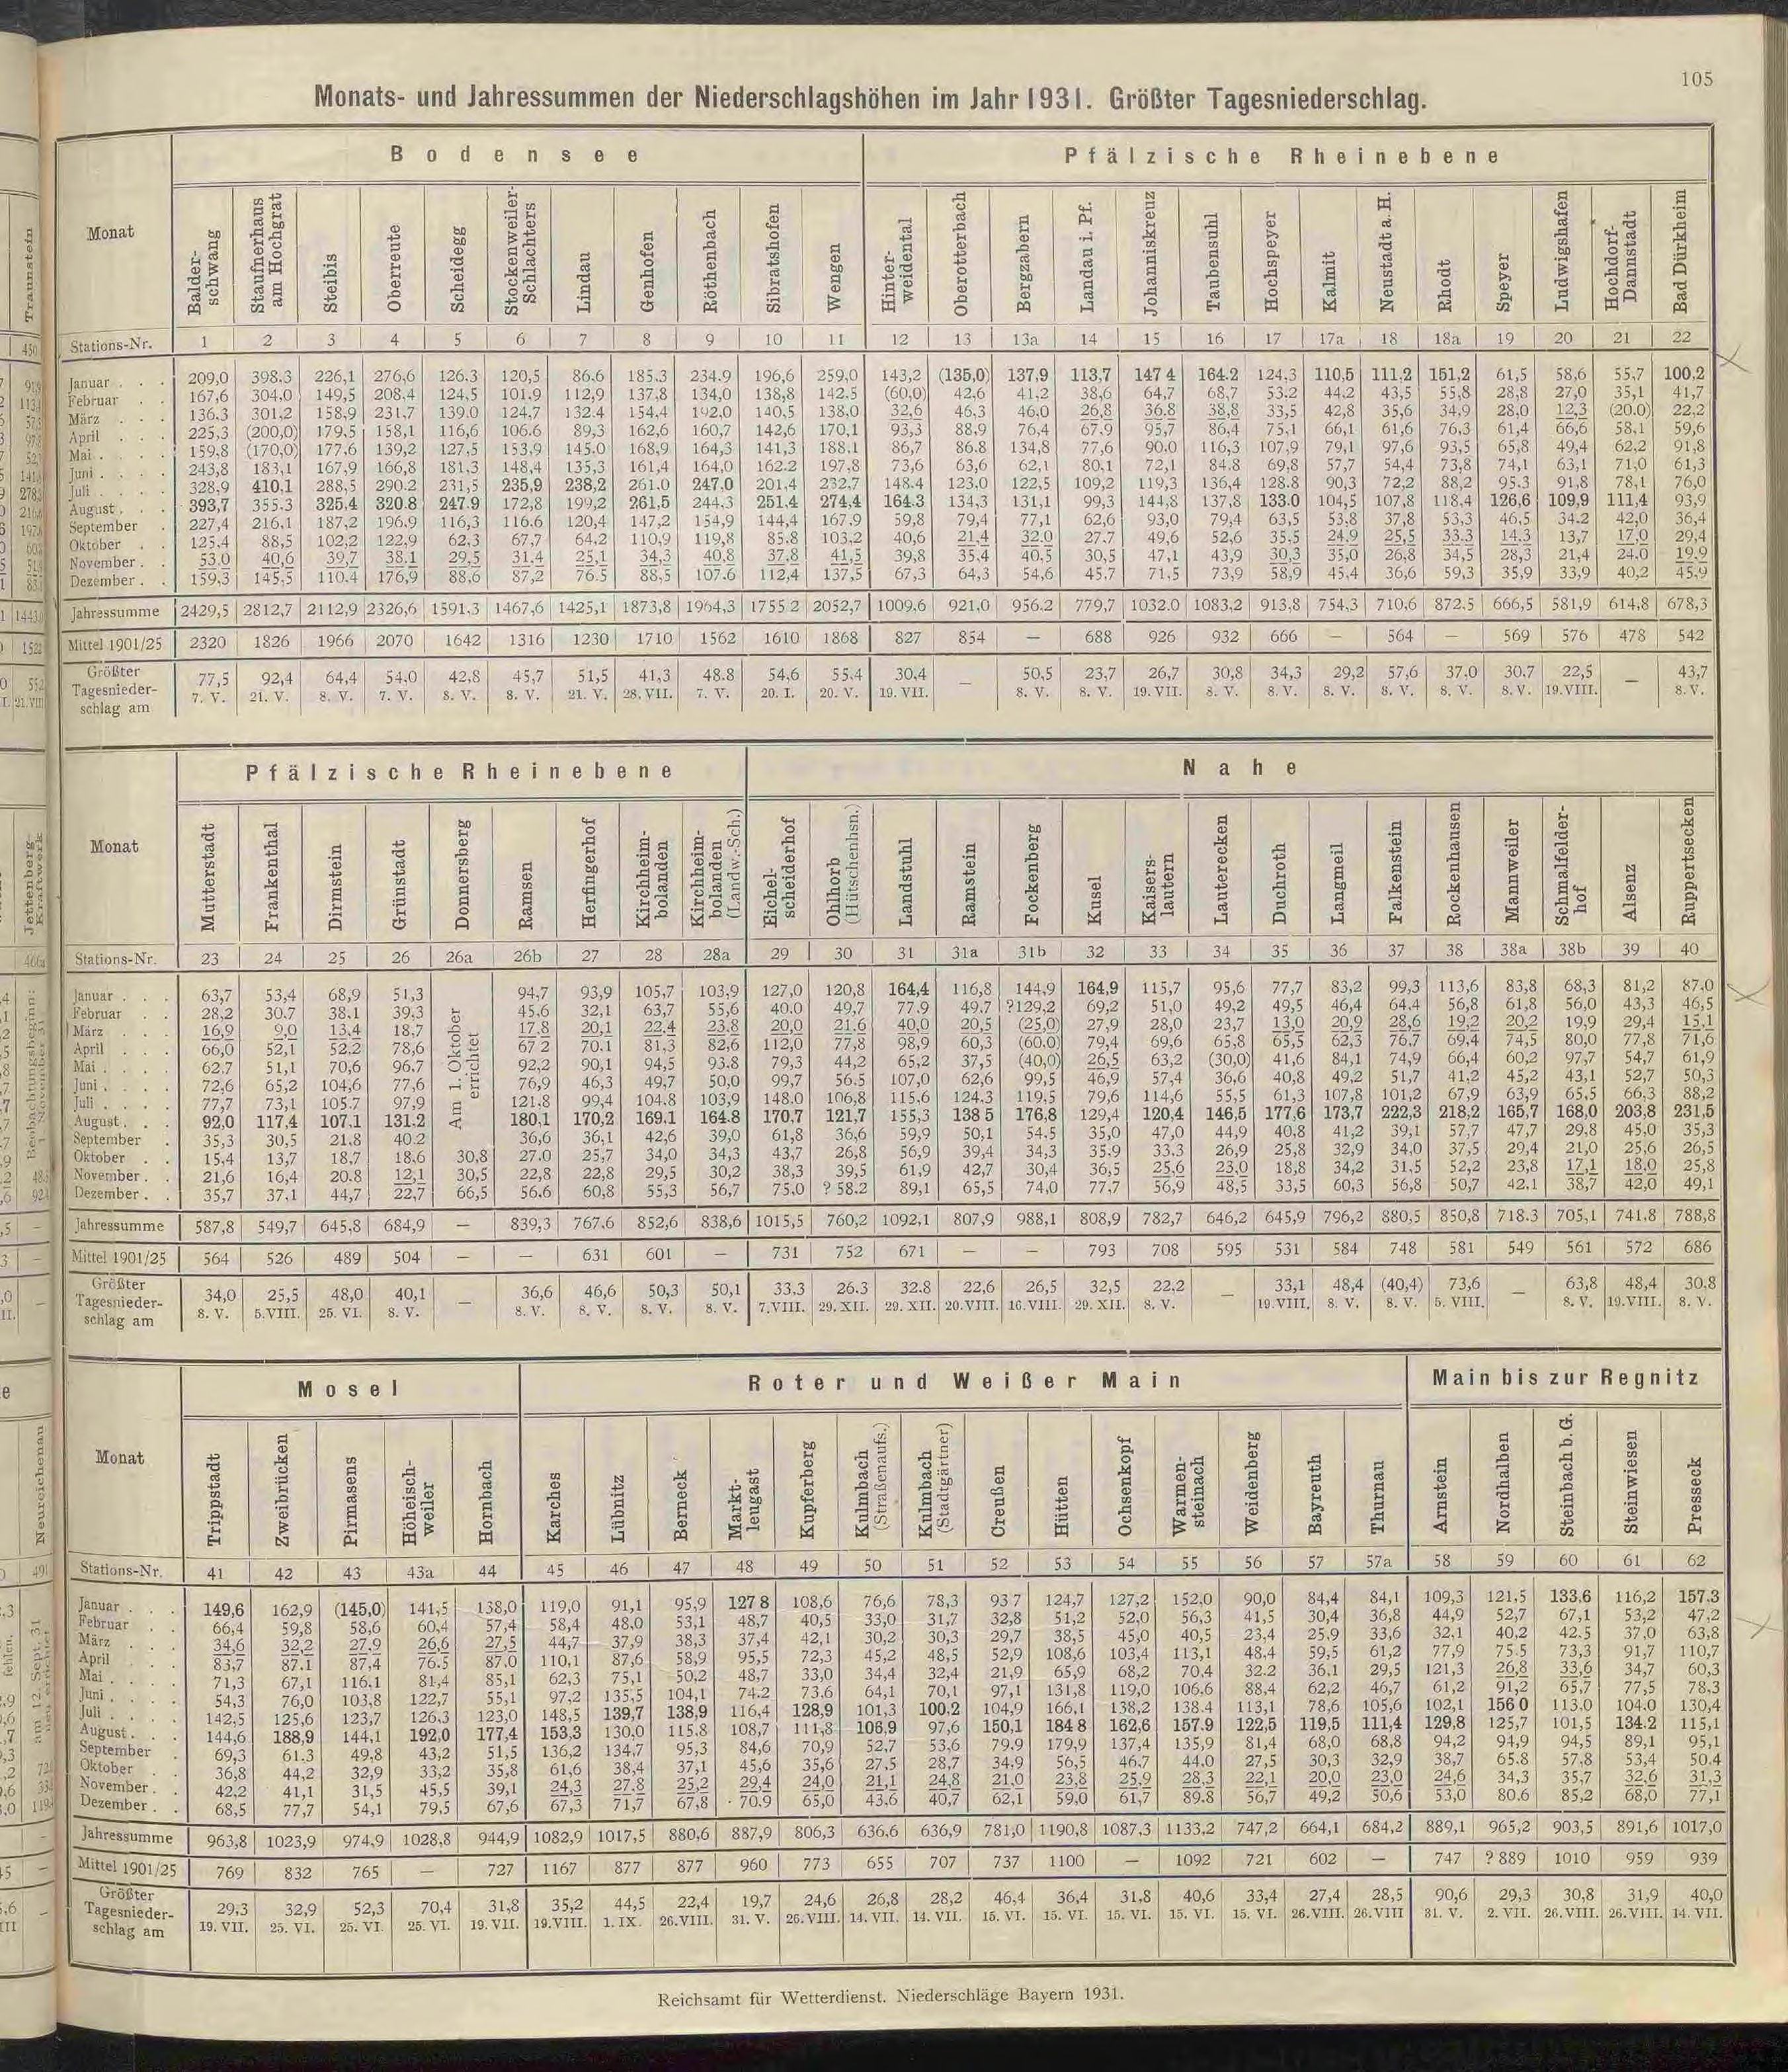 105
Monats- und Jahressummen der Niederschlagshöhen im Jahr 1931. Größter Tagesniederschlag.
Monat Bodensee Pfälzische Rheinebene
Balderschwang Staufnerhaus am Hochgrat Steibis Oberreute Scheidegg Stockenweiler-Schlachters Lindau Genhofen Röthenbach Sibratshofen Wengen Hinterweidental Oberotterbach Bergzabern Landau i. Pf. Johanniskreuz Taubensuhl Hochspeyer Kalmit Neustadt a. H. Rhodt Speyer Ludwigshafen Hochdorf-Dannstadt Bad Dürkheim
Stations-Nr. 1 2 3 4 5 6 7 8 9 10 11 12 13 13a 14 15 16 17 17a 18 18a 19 20 21 22
Januar . . . 209,0 398.3 226,1 276,6 126.3 120,5 86.6 185.3 234.9 196,6 259,0 143,2 (135,0) 137,9 113,7 147 4 164.2 124.3 110,5 111,2 151,2 61,5 58,6 55,7 100,2
Februar . . 167,6 304,0 149,5 208,4 124,5 101.9 112,9 137,8 134,0 138,8 142.5 (60,0) 42,6 41,2 38,6 64,7 68,7 53.2 44.2 43,5 55,8 28,8 27,0 35,1 41,7
März . . . 136,3 301,2 158,9 231,7 139.0 124,7 132.4 154,4 192,0 140,5 138,0 32,6 46,3 46,0 26,8 36.8 38,8 33,5 42,8 35,6 34,9 28,0 12,3 (20.0) 22,2
April . . . 225,3 (200,0) 179,5 158,1 116,6 106.6 89,3 162,6 160,7 142,6 170,1 93,3 88,9 76,4 67.9 95,7 86,4 75,1 66,1 61,6 76,3 61,4 66,6 58,1 59,6
Mai . . . . 159,8 (170,0) 177.6 139,2 127,5 153,9 145.0 168,9 164,3 141,3 188.1 86,7 86.8 134,8 77,6 90.0 116,3 107,9 79,1 97,6 93,5 65,8 49,4 62,2 91,8
Juni . . . . 243,8 183,1 167,9 166,8 181,3 148,4 135,3 161,4 164,0 162.2 197,8 73,6 63,6 62,1 80,1 72,1 84.8 69,8 57,7 54,4 73,8 74,1 63,1 71,0 61,3
Juli . . . . 328,9 410,1 288,5 290.2 231,5 235,9 238,2 261.0 247.0 201,4 232,7 148.4 123.0 122,5 109,2 119,3 136,4 128.8 90,3 72,2 88,2 95.3 91,8 78,1 76,0
August . . . 393,7 355.3 325,4 320.8 247.9 172,8 199,2 261,5 244,3 251.4 274,4 164.3 134,3 131,1 99,3 144,8 137,8 133.0 104,5 107,8 118.4 126,6 109,9 111,4 93,9
September . 227,4 216,1 187,2 196,9 116,3 116.6 120,4 147,2 154,9 144,4 167.9 59,8 79,4 77,1 62,6 93,0 79,4 63,5 53,8 37,8 53,3 46,5 34.2 42,0 36,4
Oktober . . 125,4 88,5 102,2 122,9 62,3 67,7 64,2 110,9 119,8 85.8 103,2 40,6 21,4 32.0 27.7 49,6 52,6 35,5 24.9 25,5 33.3 14.3 13,7 17,0 29,4
November . . 53.0 40,6 39,7 38,1 29,5 31.4 25,1 34,3 40,8 37,8 41,5 39,8 35.4 40,5 30,5 47,1 43,9 30,3 35,0 26,8 34,5 28,3 21,4 24.0 19.9
Dezember . . 159,3 145,5 110.4 176,9 88,6 87,2 76.5 88,5 107.6 112,4 137,5 67,3 64,3 54,6 45.7 71,5 73,9 58,9 45,4 36,6 59,3 35,9 33,9 40,2 45,9
Jahressumme 2429,5 2812,7 2112,9 2326,6 1591.3 1467,6 1425,1 1873,8 1964,3 1755 2 2052,7 1009.6 921,0 956.2 779,7 1032.0 1083,2 913,8 754,3 710,6 872.5 666,5 581,9 614,8 678,3
Mittel 1901/25 2320 1826 1966 2070 1642 1316 1230 1710 1562 1610 1868 827 854 — — 688 926 932 666 — 564 — 569 576 478 542
Größter Tagesniederschlag am 77,5 92,4 64,4 54,0 42,8 45,7 51,5 41,3 48.8 54,6 55.4 30.4 — 50,5 23,7 26,7 30,8 34,3 29,2 57,6 37.0 30.7 22,5 — 43,7
7. V. 21. V. 8. V. 7. V. 8. V. 8. V. 21. V. 28. VII. 7. V. 20. I. 20. V. 19. VII. 8. V. 8. V. 19. VII. 8. V. 8. V. 8. V. 8. V. 8. V. 8. V. 19.VIII. 8. V.
Monat Pfälzische Rheinebene Nahe
Mutterstadt Frankenthal Dirmstein Grünstadt Donnersberg Ramsen Herfingerhof Kirchheimbolanden Kirchheimbolanden (Landw.-Sch.) Eichelscheiderhof Ohlhorb (Hütschenhsn.) Landstuhl Ramstein Fockenberg Kusel Kaiserslautern Lauterecken Duchroth Langmeil Falkenstein Rockenhausen Mannweiler Schmalfelderhof Alsenz Ruppertsecken
Stations-Nr. 23 24 25 26 26a 26b 27 28 28a 29 30 31 31a 31b 32 33 34 35 36 37 38 38a 38b 39 40
Am 1. Oktober errichtet
Januar . . . 63,7 53,4 68,9 51,3 94,7 93,9 105,7 103,9 127,0 120,8 164,4 116,8 144,9 164,9 115,7 95,6 77,7 83,2 99,3 113,6 83,8 68,3 81,2 87.0
Februar . . 28,2 30.7 38.1 39,3 45.6 32,1 63,7 55,6 40.0 49,7 77.9 49.7 ?129,2 69,2 51,0 49,2 49,5 46,4 64.4 56,8 61,8 56,0 43,3 46,5
März . . . 16,9 9,0 13,4 18.7 17,8 20,1 22,4 23,8 20,0 21,6 40,0 20,5 (25,0) 27,9 28,0 23,7 13,0 20,9 28,6 19,2 20,2 19,9 29,4 15,1
April . . . 66,0 52,1 52.2 78,6 67 2 70.1 81,3 82,6 112,0 77,8 98,9 60,3 (60.0) 79,4 69,6 65,8 65,5 62,3 76,7 69,4 74,5 80,0 77,8 71,6
Mai . . . . 62.7 51,1 70,6 96.7 92,2 90,1 94,5 93.8 79,3 44,2 65,2 37,5 (40,0) 26,5 63.2 (30,0) 41,6 84,1 74,9 66,4 60,2 97,7 54,7 61,9
Juni . . . . 72,6 65,2 104,6 77,6 76,9 46,3 49,7 50,0 99,7 56.5 107,0 62,6 99,5 46,9 57,4 36,6 40,8 49,2 51,7 41,2 45,2 43,1 52,7 50,3
Juli . . . . 77,7 73,1 105.7 97,9 121.8 99,4 104.8 103,9 148.0 106,8 115,6 124.3 119,5 79,6 114,6 55,5 61,3 107,8 101,2 67,9 63,9 65,5 66,3 88,2
August . . . 92,0 117,4 107,1 131.2 180,1 170,2 169,1 164.8 170,7 121,7 155,3 138 5 176,8 129,4 120,4 146,5 177,6 173,7 222,3 218,2 165,7 168,0 203,8 231,5
September . 35,3 30,5 21,8 40.2 36,6 36,1 42,6 39,0 61,8 36,6 59,9 50,1 54.5 35,0 47,0 44,9 40,8 41,2 39,1 57,7 47,7 29,8 45.0 35,3
Oktober . . 15,4 13,7 18,7 18,6 30,8 27.0 25,7 34,0 34,3 43,7 26,8 56,9 39,4 34,3 35.9 33.3 26,9 25,8 32,9 34,0 37,5 29,4 21,0 25,6 26,5
November . . 21,6 16,4 20.8 12,1 30,5 22,8 22,8 29,5 30,2 38,3 39,5 61,9 42,7 30,4 36,5 25,6 23,0 18,8 34,2 31,5 52,2 23,8 17,1 18,0 25,8
Dezember . . 35,7 37.1 44,7 22,7 66,5 56.6 60,8 55,3 56,7 75.0 ? 58.2 89,1 65,5 74,0 77,7 56,9 48,5 33,5 60,3 56,8 50,7 42.1 38,7 42,0 49,1
Jahressumme 587,8 549,7 645,8 684,9 — 839,3 767,6 852,6 838,6 1015,5 760,2 1092,1 807,9 988,1 808,9 782,7 646,2 645,9 796,2 880,5 850,8 718.3 705,1 741.8 788,8
Mittel 1901/25 564 526 489 504 — — 631 601 — 731 752 671 — — 793 708 595 531 584 748 581 549 561 572 686
Größter Tagesniederschlag am 34,0 25,5 48,0 40,1 — 36,6 46,6 50,3 50,1 33.3 26.3 32.8 22,6 26,5 32,5 22,2 — 33,1 48,4 (40,4) 73,6 — 63,8 48,4 30.8
8. V. 5.VIII. 25. VI. 8. V. 8. V. 8. V. 8. V. 8. V. 7.VIII. 29. XII. 29. XII. 20.VIII. 16.VIII. 29. XII. 8. V. 19.VIII. 8. V. 8. V. 5. VIII. 8. V. 19.VIII. 8. V.
Monat Mosel Roter und Weißer Main Main bis zur Regnitz
Trippstadt Zweibrücken Pirmasens Höheischweiler Hornbach Karches Lübnitz Berneck Marktleugast Kupferberg Kulmbach (Straßenaufs.) Kulmbach (Stadtgärtner) Creußen Hütten Ochsenkopf Warmensteinach Weidenberg Bayreuth Thurnau Arnstein Nordhalben Steinbach b. G. Steinwiesen Presseck
Stations-Nr. 41 42 43 43a 44 45 46 47 48 49 50 51 52 53 54 55 56 57 57a 58 59 60 61 62
Januar . . . 149,6 162,9 (145,0) 141,5 138,0 119,0 91,1 95,9 127 8 108,6 76,6 78,3 93 7 124,7 127,2 152,0 90,0 84,4 84,1 109,3 121,5 133,6 116,2 157.3
Februar . . 66,4 59,8 58,6 60,4 57,4 58,4 48,0 53,1 48,7 40,5 33,0 31,7 32,8 51,2 52,0 56,3 41,5 30,4 36,8 44,9 52,7 67,1 53,2 47,2
März . . . 34,6 32,2 27,9 26,6 27,5 44,7 37,9 38,3 37,4 42,1 30,2 30,3 29,7 38,5 45,0 40,5 23,4 25,9 33,6 32,1 40,2 42.5 37,0 63,8
April . . . 83,7 87.1 87,4 76.5 87.0 110,1 87,6 58,9 95,5 72,3 45,2 48,5 52,9 108,6 103,4 113,1 48.4 59,5 61,2 77,9 75.5 73,3 91,7 110,7
Mai . . . . 71,3 67,1 116.1 81,4 85,1 62,3 75,1 50,2 48,7 33,0 34,4 32,4 21,9 65,9 68,2 70.4 32.2 36,1 29,5 121,3 26,8 33,6 34,7 60,3
Juni . . . . 54,3 76,0 103,8 122,7 55,1 97,2 135,5 104,1 74.2 73.6 64,1 70,1 97,1 131,8 119,0 106.6 88,4 62,2 46,7 61,2 91,2 65,7 77,5 78,3
Juli . . . . 142,5 125,6 123,7 126,3 123,0 148,5 139,7 138,9 116,4 128,9 101,3 100.2 104,9 166,1 138,2 138.4 113,1 78,6 105,6 102,1 156 0 113.0 104.0 130,4
August . . . 144,6 188,9 144,1 192,0 177,4 153,3 130,0 115.8 108,7 111,8 106,9 97,6 150,1 184 8 162,6 157.9 122,5 119,5 111,4 129,8 125,7 101,5 134.2 115,1
September . 69,3 61.3 49,8 43,2 51,5 136,2 134,7 95,3 84,6 70,9 52,7 53,6 79.9 179,9 137,4 135,9 81,4 68,0 68,8 94,2 94,9 94,5 89,1 95,1
Oktober . . 36,8 44,2 32,9 33,2 35,8 61,6 38,4 37,1 45,6 35,6 27,5 28,7 34,9 56,5 46,7 44.0 27,5 30,3 32,9 38,7 65.8 57,8 53,4 50.4
November . . 42,2 41,1 31,5 45,5 39,1 24,3 27.8 25,2 29,4 24,0 21,1 24,8 21,0 23,8 25,9 28,3 22,1 20,0 23,0 24,6 34,3 35,7 32,6 31,3
Dezember . . 68,5 77,7 54,1 79,5 67,6 67,3 71,7 67,8 70.9 65,0 43.6 40,7 62,1 59,0 61,7 89.8 56,7 49,2 50,6 53,0 80.6 85,2 68,0 77,1
Jahressumme 963,8 1023,9 974,9 1028,8 944,9 1082,9 1017,5 880,6 887,9 806,3 636,6 636,9 781,0 1190,8 1087,3 1133,2 747,2 664,1 684,2 889,1 965,2 903,5 891,6 1017,0
Mittel 1901/25 769 832 765 — 727 1167 877 877 960 773 655 707 737 1100 — 1092 721 602 — 747 ? 889 1010 959 939
Größter Tagesniederschlag am 29,3 32,9 52,3 70,4 31,8 35,2 44,5 22,4 19,7 24,6 26,8 28,2 46,4 36,4 31,8 40,6 33,4 27,4 28,5 90,6 29,3 30,8 31,9 40,0
19. VII. 25. VI. 25. VI. 25. VI. 19. VII. 19.VIII. 1. IX. 26.VIII. 31. V. 26.VIII. 14. VII. 14. VII. 15. VI. 15. VI. 15. VI. 15. VI. 15. VI. 26.VIII. 26.VIII 31. V. 2. VII. 26.VIII. 26.VIII. 14. VII.
Reichsamt für Wetterdienst. Niederschläge Bayern 1931.